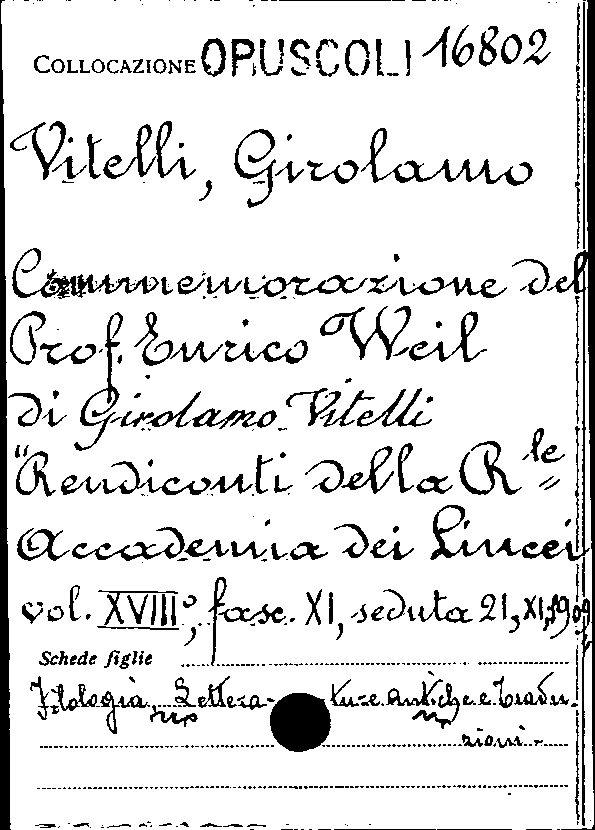 COLLOCAZIONE OPUSCOLI 16802
Vitelli, Girolamo
Commemorazione del
Prof. Enrico Weil
di Girolamo Vitelli
"Rendiconti della R.le
Accademia dei Lincei
vol. XVIII°, fasc. XI, seduta 21, XI, 1909,
Schede figlie
Filologia, Lettera- ture antiche e tradu-
zioni -